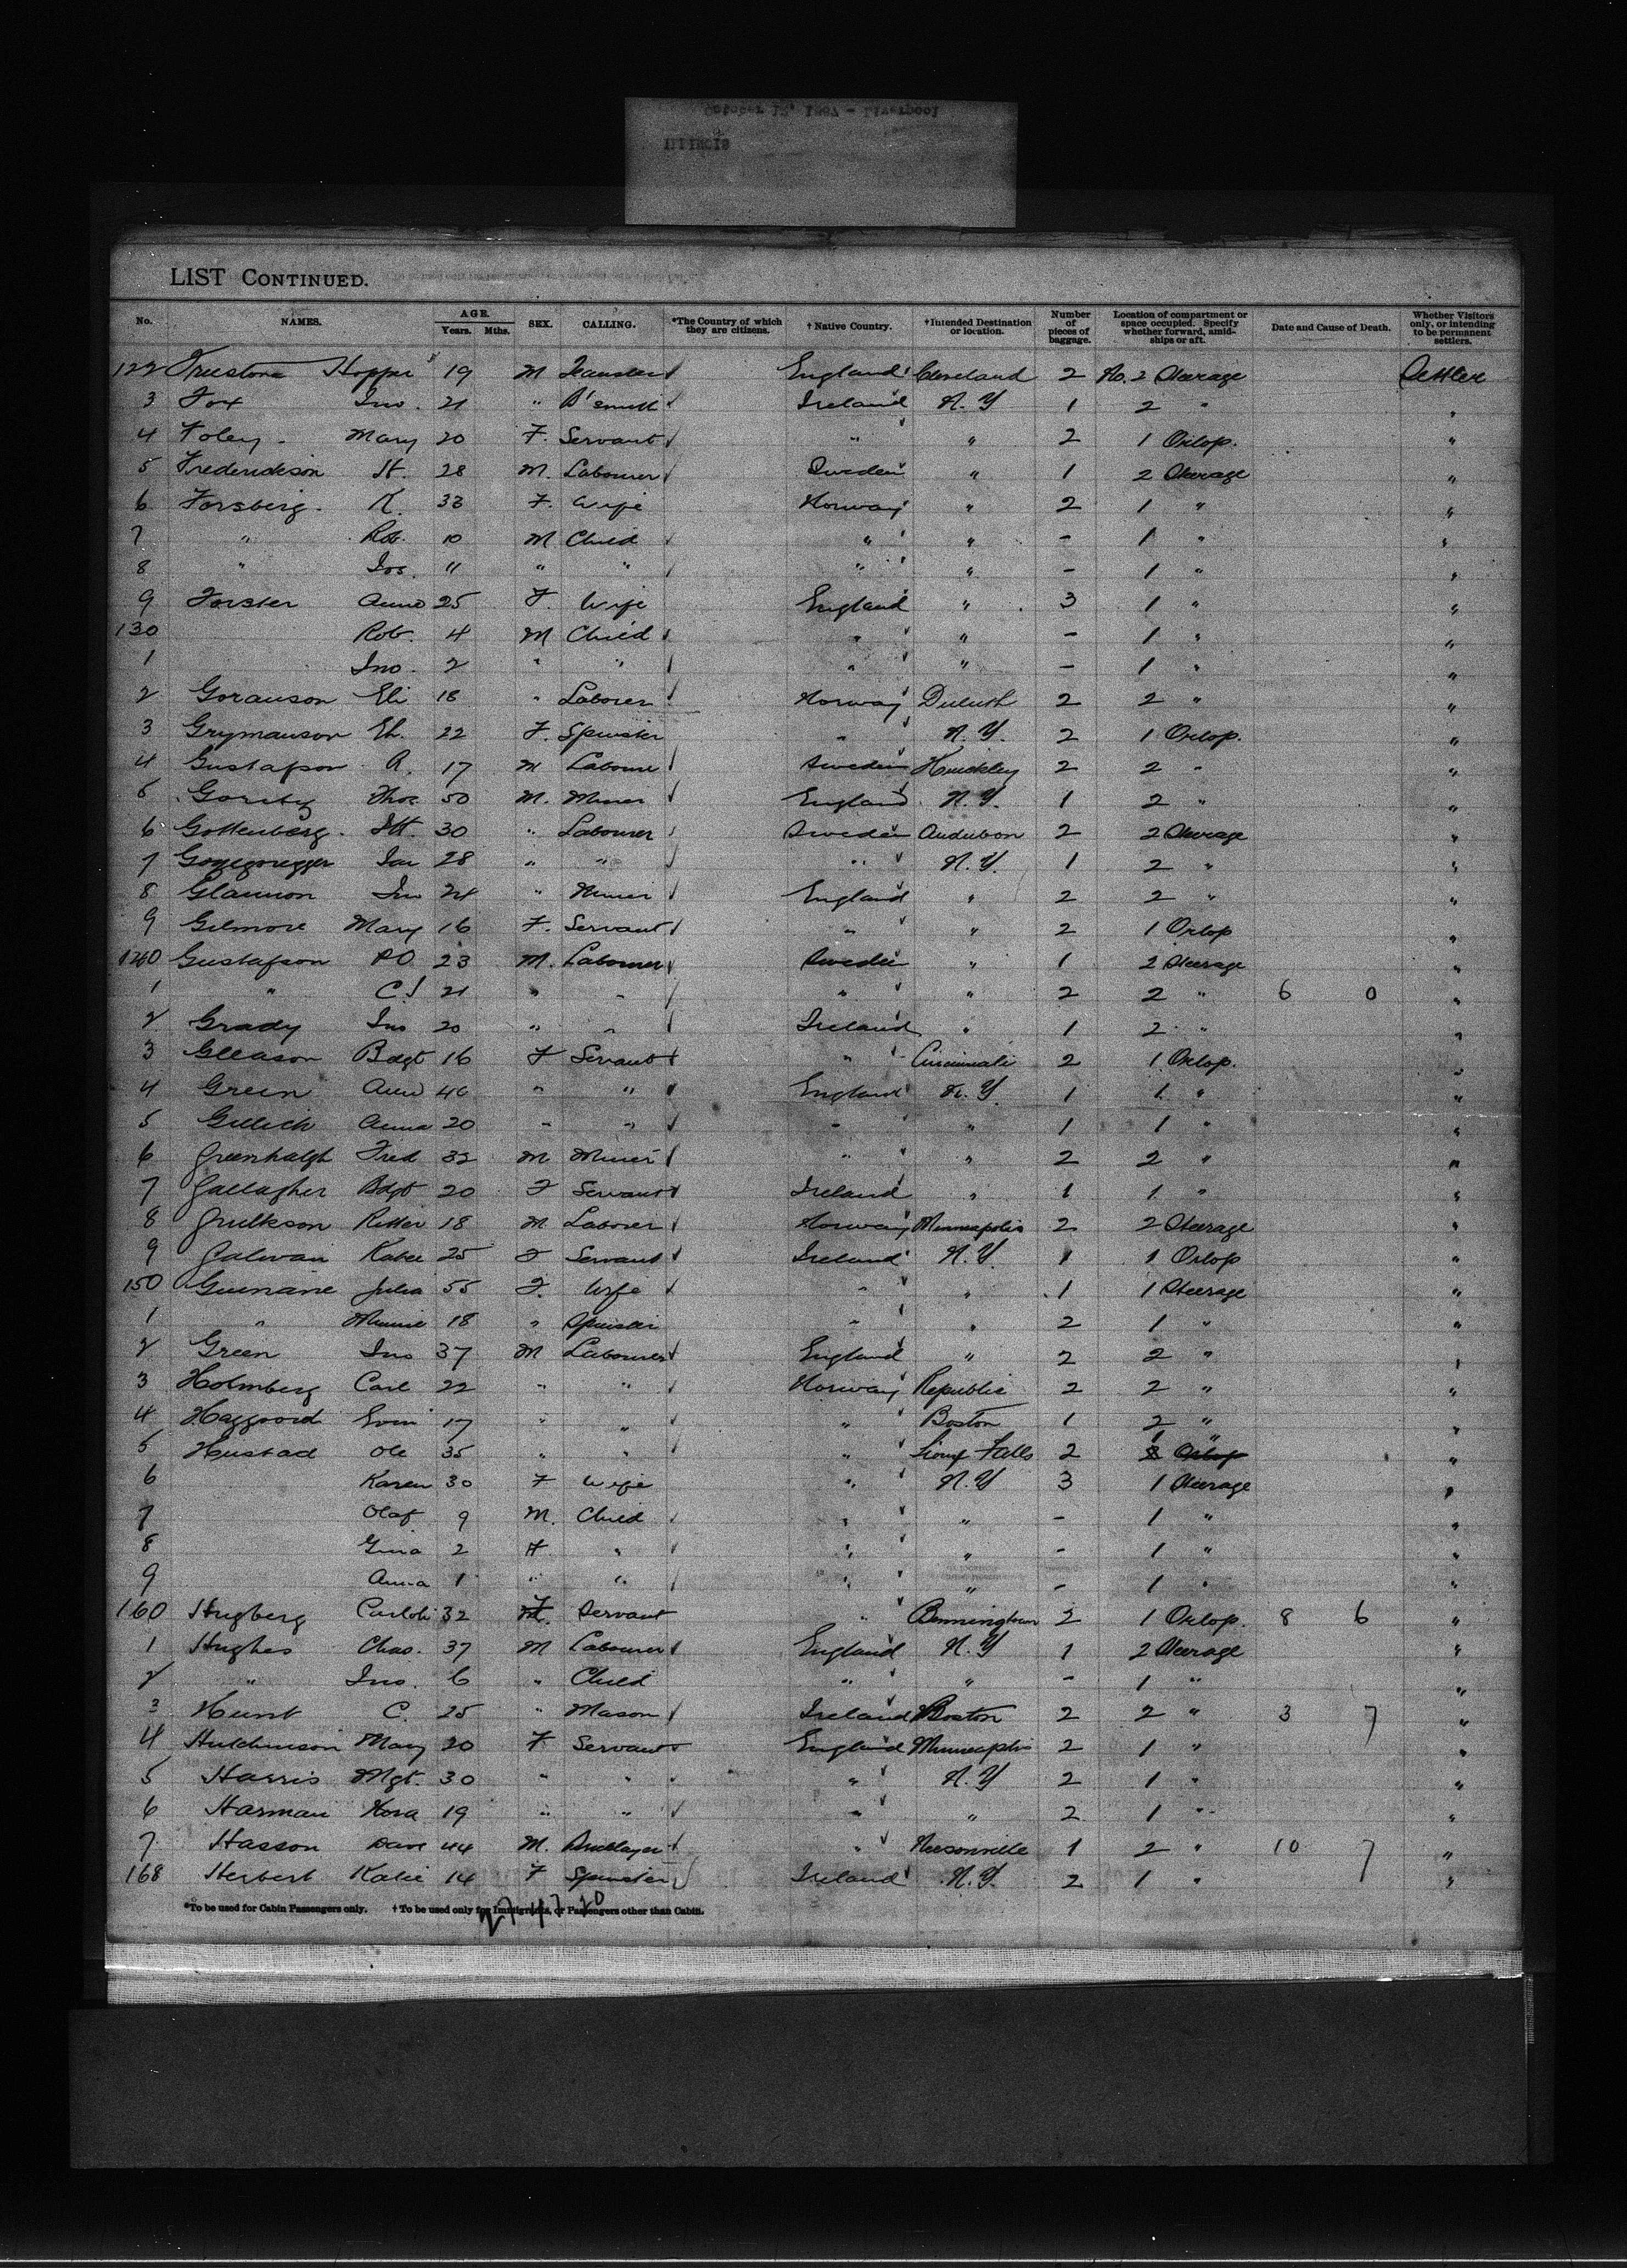 LIST CONTINUED.
No. NAMES. AGE. Years. Mths. SEX. CALLING. *The Country of which they are citizens. †Native Country. †Intended Destination or location. Number of pieces of baggage. Location of compartment or space occupied. Specify whether forward, amidships or aft. Date and Cause of Death. Whether Visitors only, or intending to be permanent settlers.
122 19 M England Cleveland 2 No. 2 Steerage Settler
3 Fox Jno. 21 " B'smith Ireland N.Y 1 2 " "
4 Foley Mary 20 F. Servant " " 2 1 Orlop. "
5 Frederickson H. 28 M. Labourer Sweden " 1 2 Steerage "
6 Forsberg. K. 33 F. Wife Norway " 2 1 " "
7 " Rob. 10 M Child " " - 1 " "
8 " Jos. 11 " " " " - 1 " "
9 Forster Anne 25 F. Wife England " 3 1 " "
130 Rob. 4 M Child " " - 1 " "
1 Jno. 2 " " " " - 1 " "
2 Goranson Eli 18 " Laborer Norway Duluth 2 2 " "
3 Grymanson Eh. 22 F. Spinster " N.Y. 2 1 Orlop. "
4 Gustafson A. 17 M Sweden Hinckley 2 2 " "
5 Thos. 50 M. Miner England N.Y. 1 2 " "
6 Gottenberg. 30 " Labourer Sweden Audubon 2 2 Steerage "
7 28 " " " N.Y. 1 2 " "
8 Glannon Jno 24 " Miner England " 2 2 " "
9 Gilmore Mary 16 F. Servant " " 2 1 Orlop "
140 Gustafson P.O. 23 M. Labourer Sweden " 1 2 Steerage "
1 " C.J 21 " " " " 2 2 " 6 0 "
2 Grady Jno 20 " " Ireland " 1 2 " "
3 Gleason Bdgt 16 F Servant " Cincinnati 2 1 Orlop. "
4 Green Ann 46 " " England N.Y. 1 1 " "
5 Anna 20 " " " " 1 1 " "
6 Greenhalgh Fred 32 M Miner " " 2 2 " "
7 Gallagher Bdgt 20 F Servant Ireland " 1 1 " "
8 18 M Laborer Norway Minneapolis 2 2 Steerage "
9 Galwan Katee 25 F Servant Ireland N.Y. 1 1 Orlop "
150 Guinane Julia 55 F. Wife " " 1 1 Steerage "
1 " Minnie 18 " Spinster " " 2 1 " "
2 Green Jno 37 M Labourer England " 2 2 " "
3 Holmberg Carl 22 " " Norway Republic 2 2 " "
4 17 " " " Boston 1 2 " "
5 Hustad Ole 35 " " " Sioux Falls 2 "
6 Karen 30 F Wife " N.Y 3 1 Steerage "
7 Olaf 9 M. Child " " - 1 " "
8 Gina 2 F " " " - 1 " "
9 Anna 1 " " " " - 1 " "
160 Hugberg 32 F Servant " Bennington 2 1 Orlop. 8 6 "
1 Hughes Chas. 37 M Labourer England N.Y 1 2 Steerage "
2 " Jno. 6 " Child " " - 1 " "
3 Hunt C. 25 " Mason Ireland Boston 2 2 " 3 7 "
4 Hutchinson Mary 20 F Servant England 2 1 " "
5 Harris Mgt. 30 " " " N.Y 2 1 " "
6 Harman Nora 19 " " " " 2 1 " "
7 Hasson Dave 44 M. " Nelsonville 1 2 " 10 7 "
168 Herbert Katie 14 F Spinster Ireland N.Y. 2 1 " "
*To be used for Cabin Passengers only. †To be used only for Immigrants, or Passengers other than Cabin.